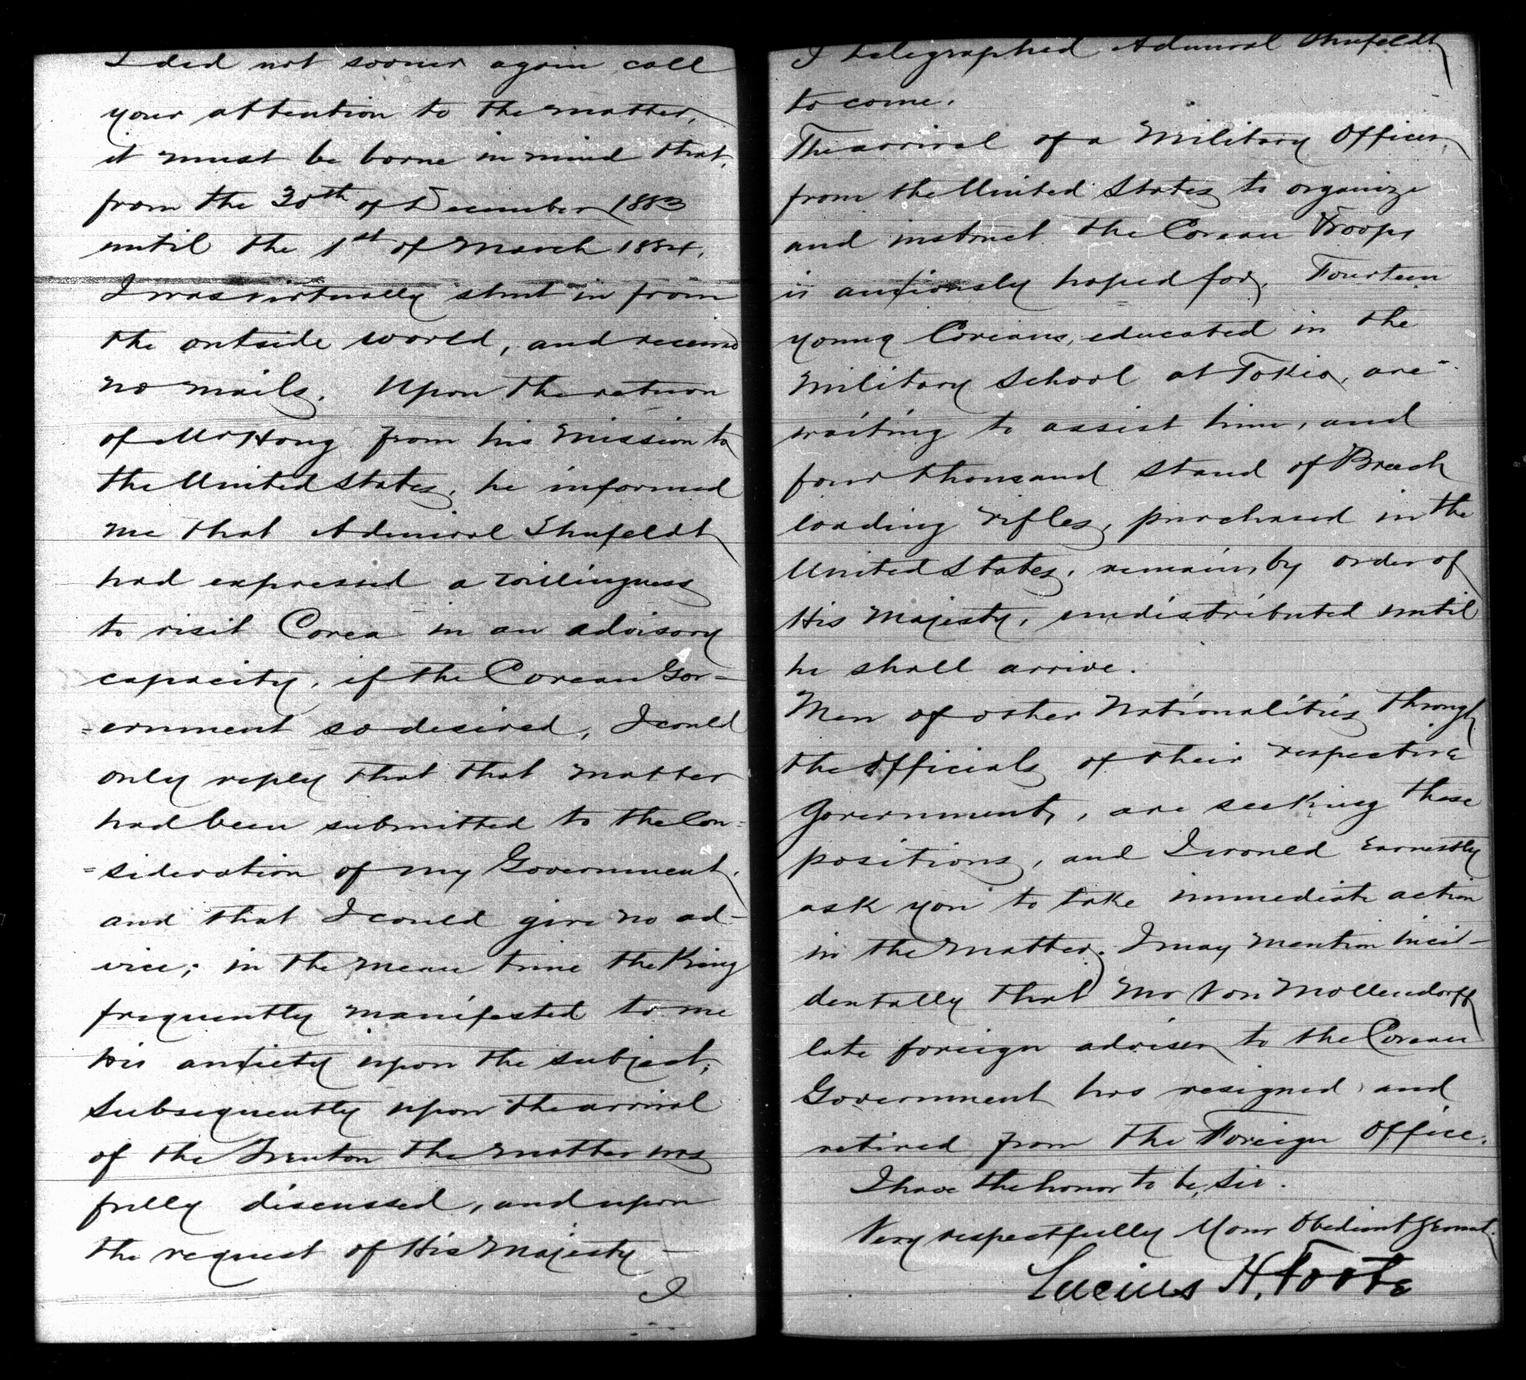 I did not sooner again call
your attention to the matter,
it must be borne in mind that,
from the 30th of December 1883
until the 1st of March 1884,
I was virtually shut in from
the outside world, and received
no mails. Upon the return
of Mr Hong from his Mission to
the United States, he informed
me that Admiral Shufeldt
had expressed a willingness
to visit Corea in an advisory
capacity, if the Corean Gov-
=ernment so desired, I could
only reply that that matter
had been submitted to the Con-
=sideration of my Government,
and that I could give no ad-
vice; in the mean time the King
frequently manifested to me
his anxiety upon the subject;
Subsequently upon the arrival
of the Trenton the matter was
fully discussed, and upon
the request of His Majesty —
I
I telegraphed Admiral Shufeldt
to come.
The arrival of a Military Officer,
from the United States to organize
and instruct the Corean Troops
is anxiously hoped for, Fourteen
young Coreans, educated in the
Military School at Tokio, are
waiting to assist him, and
four thousand stand of Breech
loading rifles, purchased in the
United States, remain, by order of
His Majesty, undistributed until
he shall arrive.
Men of other Nationalities through
the officials of their respective
Governments, are seeking these
positions, and I would earnestly
ask you to take immediate action
in the matter. I may mention inci-
dentally that Mr Von Mollendorff
late foreign adviser to the Corean
Government has resigned and
retired from the Foreign Office.
I have the honor to be, Sir.
Very respectfully Your Obedient Servant.
Lucius H. Foote